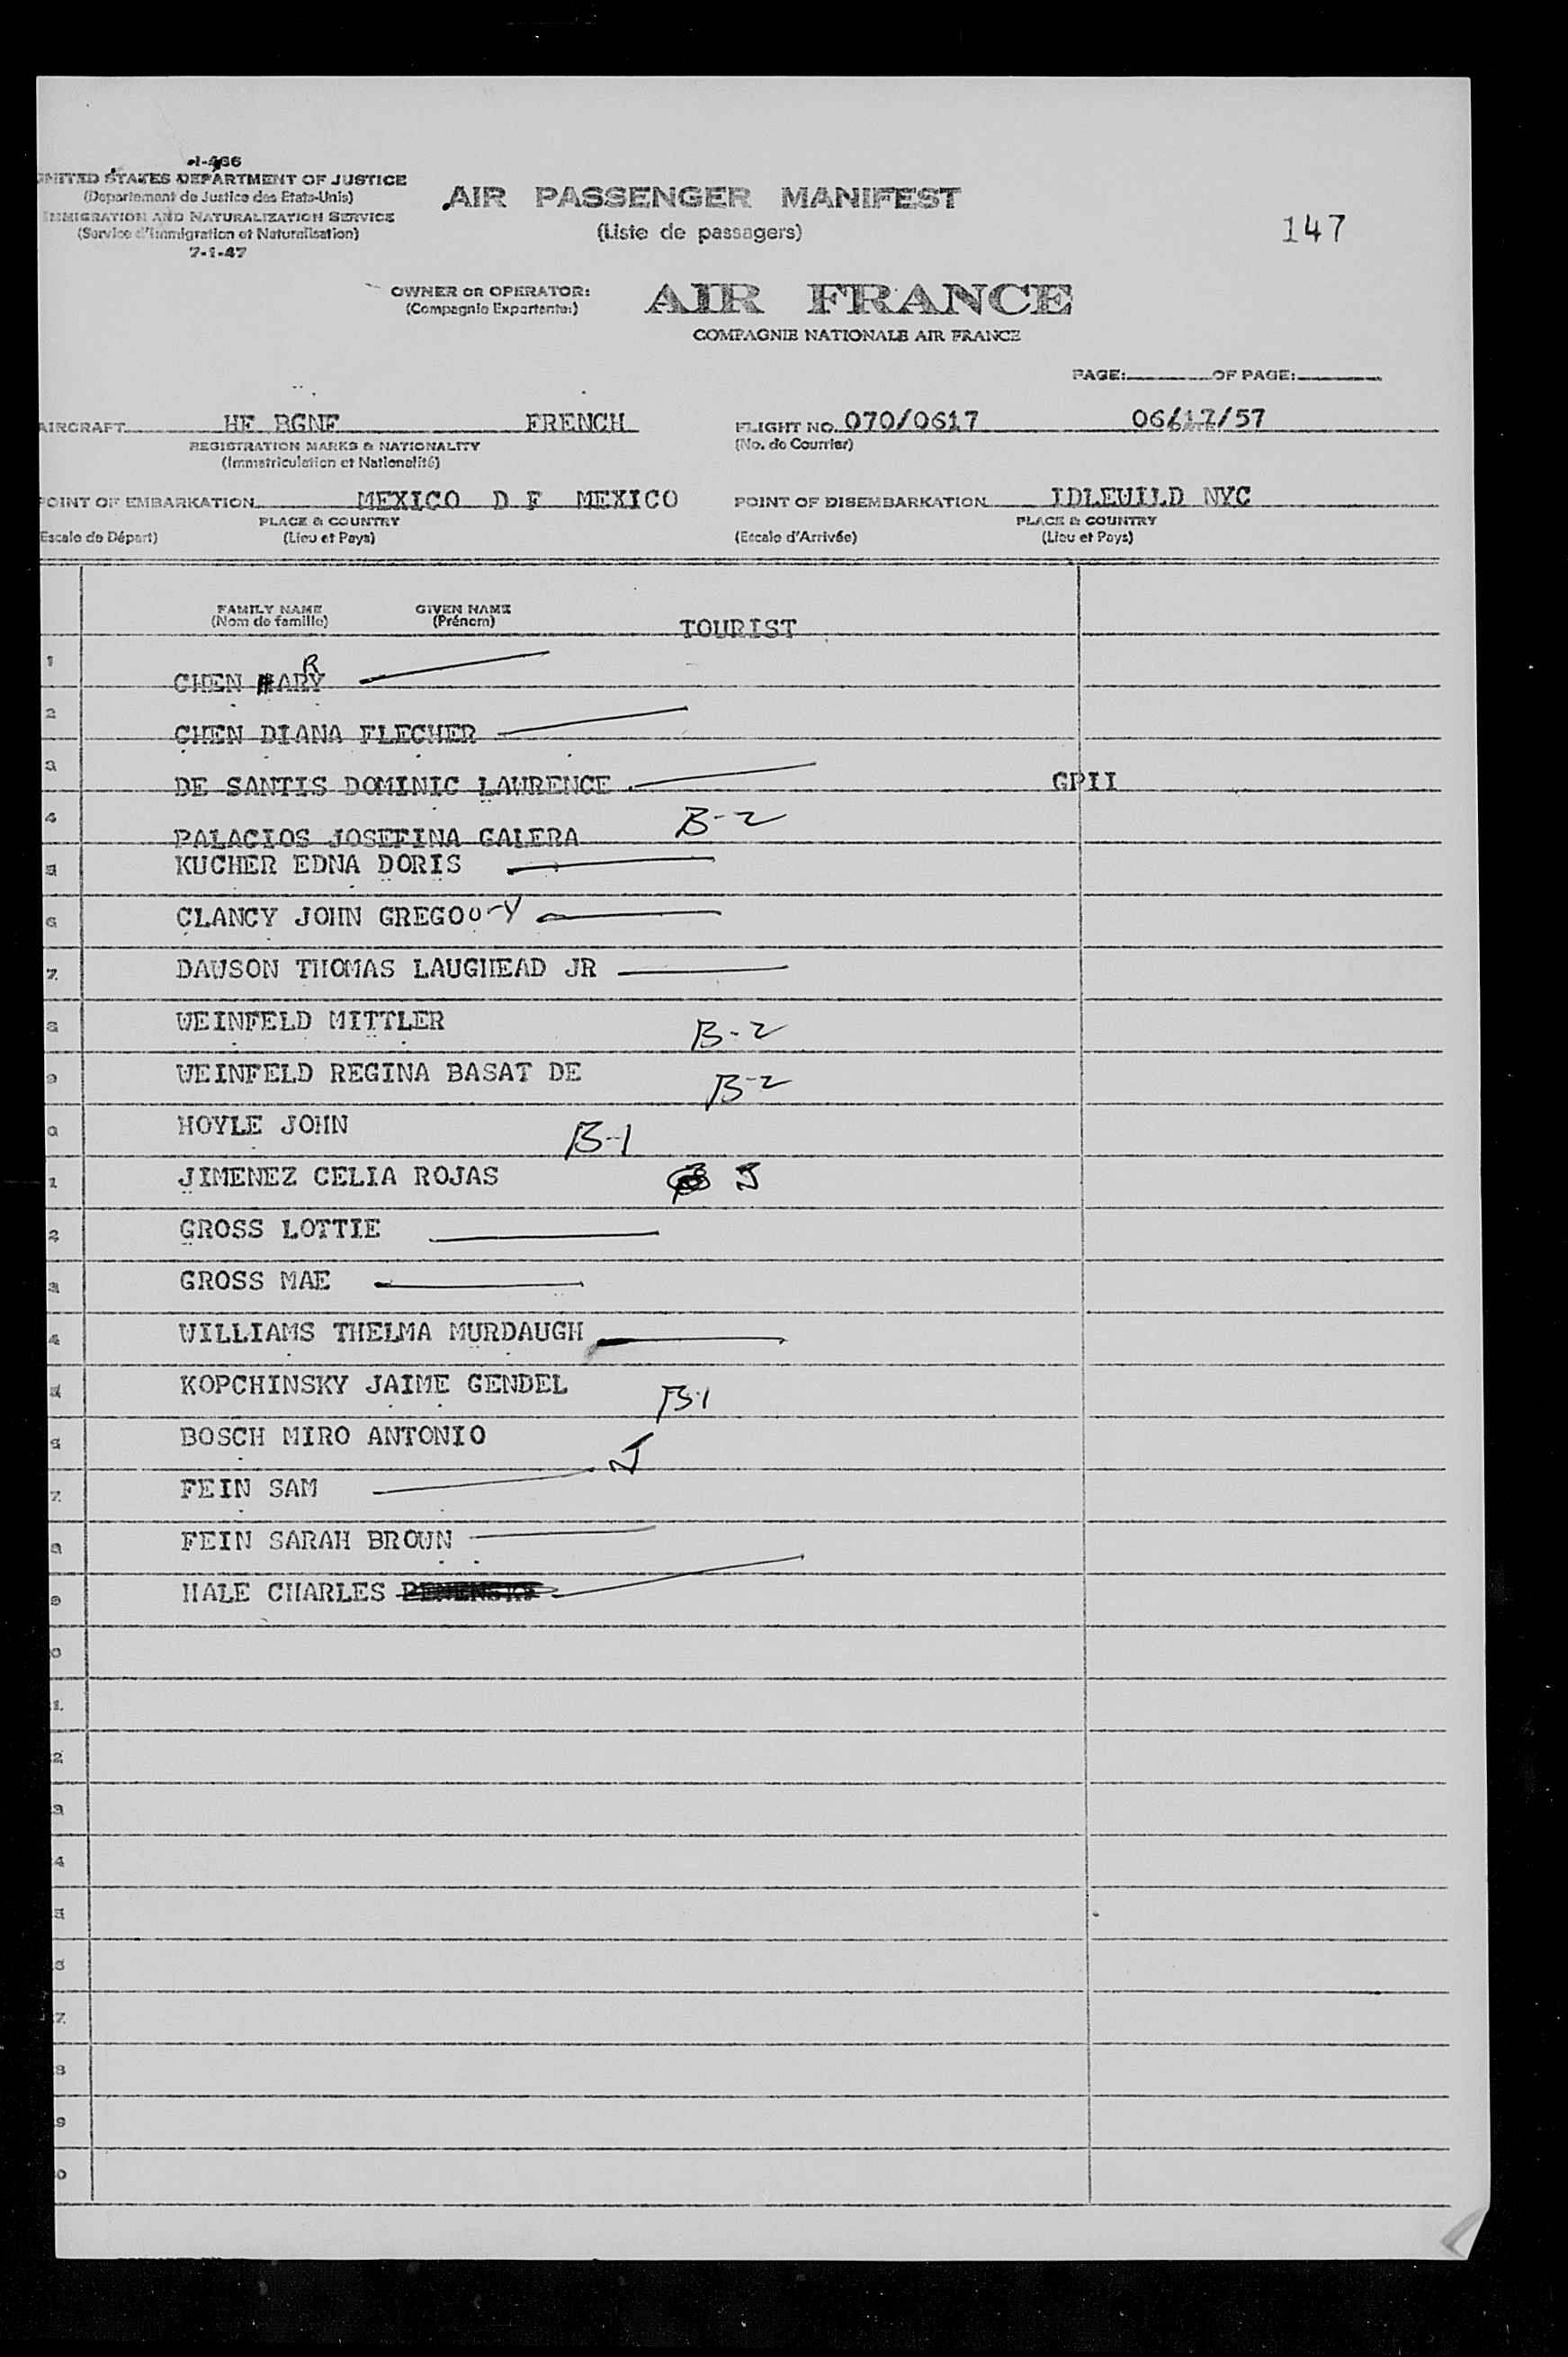 I-466
UNITED STATES DEPARTMENT OF JUSTICE
(Departement de Justice des Etats-Unis)
IMMIGRATION AND NATURALIZATION SERVICE
(Service d'Immigration et Naturalisation)
7-1-47
AIR PASSENGER MANIFEST
(Liste de passagers)
147
OWNER OR OPERATOR:
(Compagnie Exportante:)
AIR FRANCE
COMPAGNIE NATIONALE AIR FRANCE
PAGE: OF PAGE:
AIRCRAFT HF BGNF FRENCH FLIGHT NO. 070/0617 06/17/57
REGISTRATION MARKS & NATIONALITY (No. de Courrier)
(Immatriculation et Nationalité)
POINT OF EMBARKATION MEXICO D F MEXICO POINT OF DISEMBARKATION IDLEWILD NYC
PLACE & COUNTRY PLACE & COUNTRY
(Escale de Départ) (Lieu et Pays) (Escale d'Arrivée) (Lieu et Pays)
FAMILY NAME GIVEN NAME
(Nom de famille) (Prénom) TOURIST
1 CHEN HARY R
2 CHEN DIANA FLECHER
3 DE SANTIS DOMINIC LAWRENCE GPII
4 PALACIOS JOSEFINA GALERA B-2
5 KUCHER EDNA DORIS
6 CLANCY JOHN GREGOORY
7 DAWSON THOMAS LAUGHEAD JR
8 WEINFELD MITTLER B-2
9 WEINFELD REGINA BASAT DE B-2
0 HOYLE JOHN B-1
1 JIMENEZ CELIA ROJAS J
2 GROSS LOTTIE
3 GROSS MAE
4 WILLIAMS THELMA MURDAUGH
5 KOPCHINSKY JAIME GENDEL B-1
6 BOSCH MIRO ANTONIO J
7 FEIN SAM
8 FEIN SARAH BROWN
9 HALE CHARLES
0
1
2
3
4
5
6
7
8
9
0